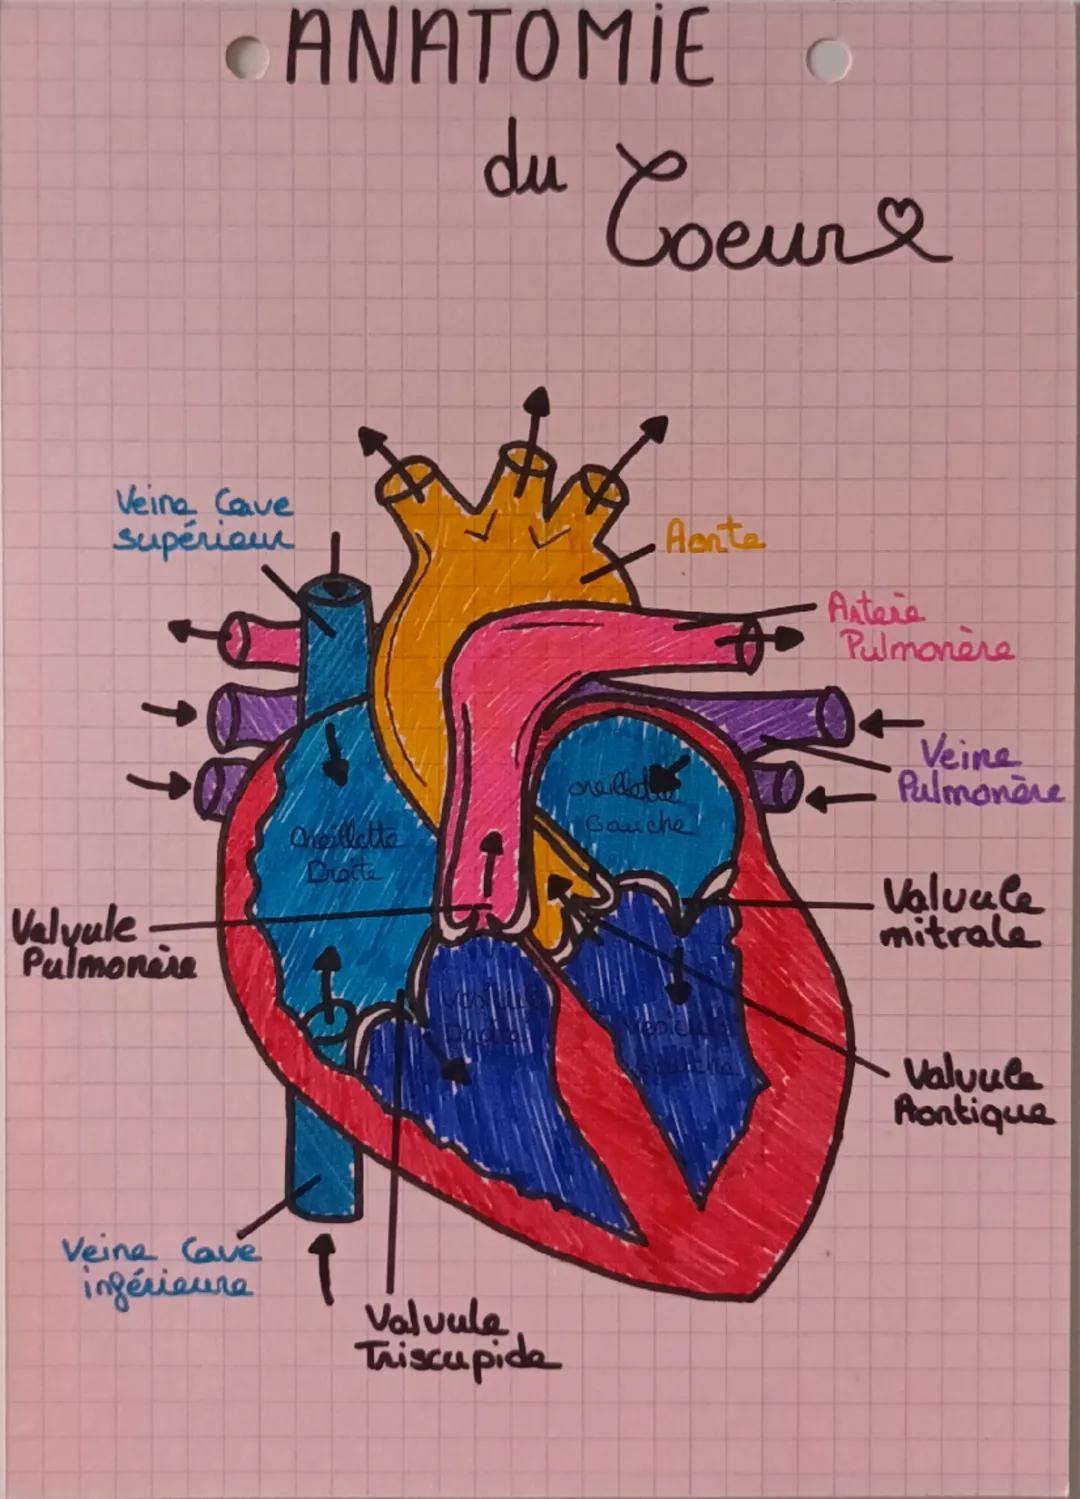 ANATOMiE
du Coeur
Veine Cave
supérieur
Aorte
Arterie
Pulmonère
Veine
Pulmonère
Oreillette
Droite
oreillette
Gauche
Valvule
Pulmonère
Valvule
mitrale
Droite
Gauche
Valvule
Aortique
Veine Cave
inférieure
Valvule
Triscupide